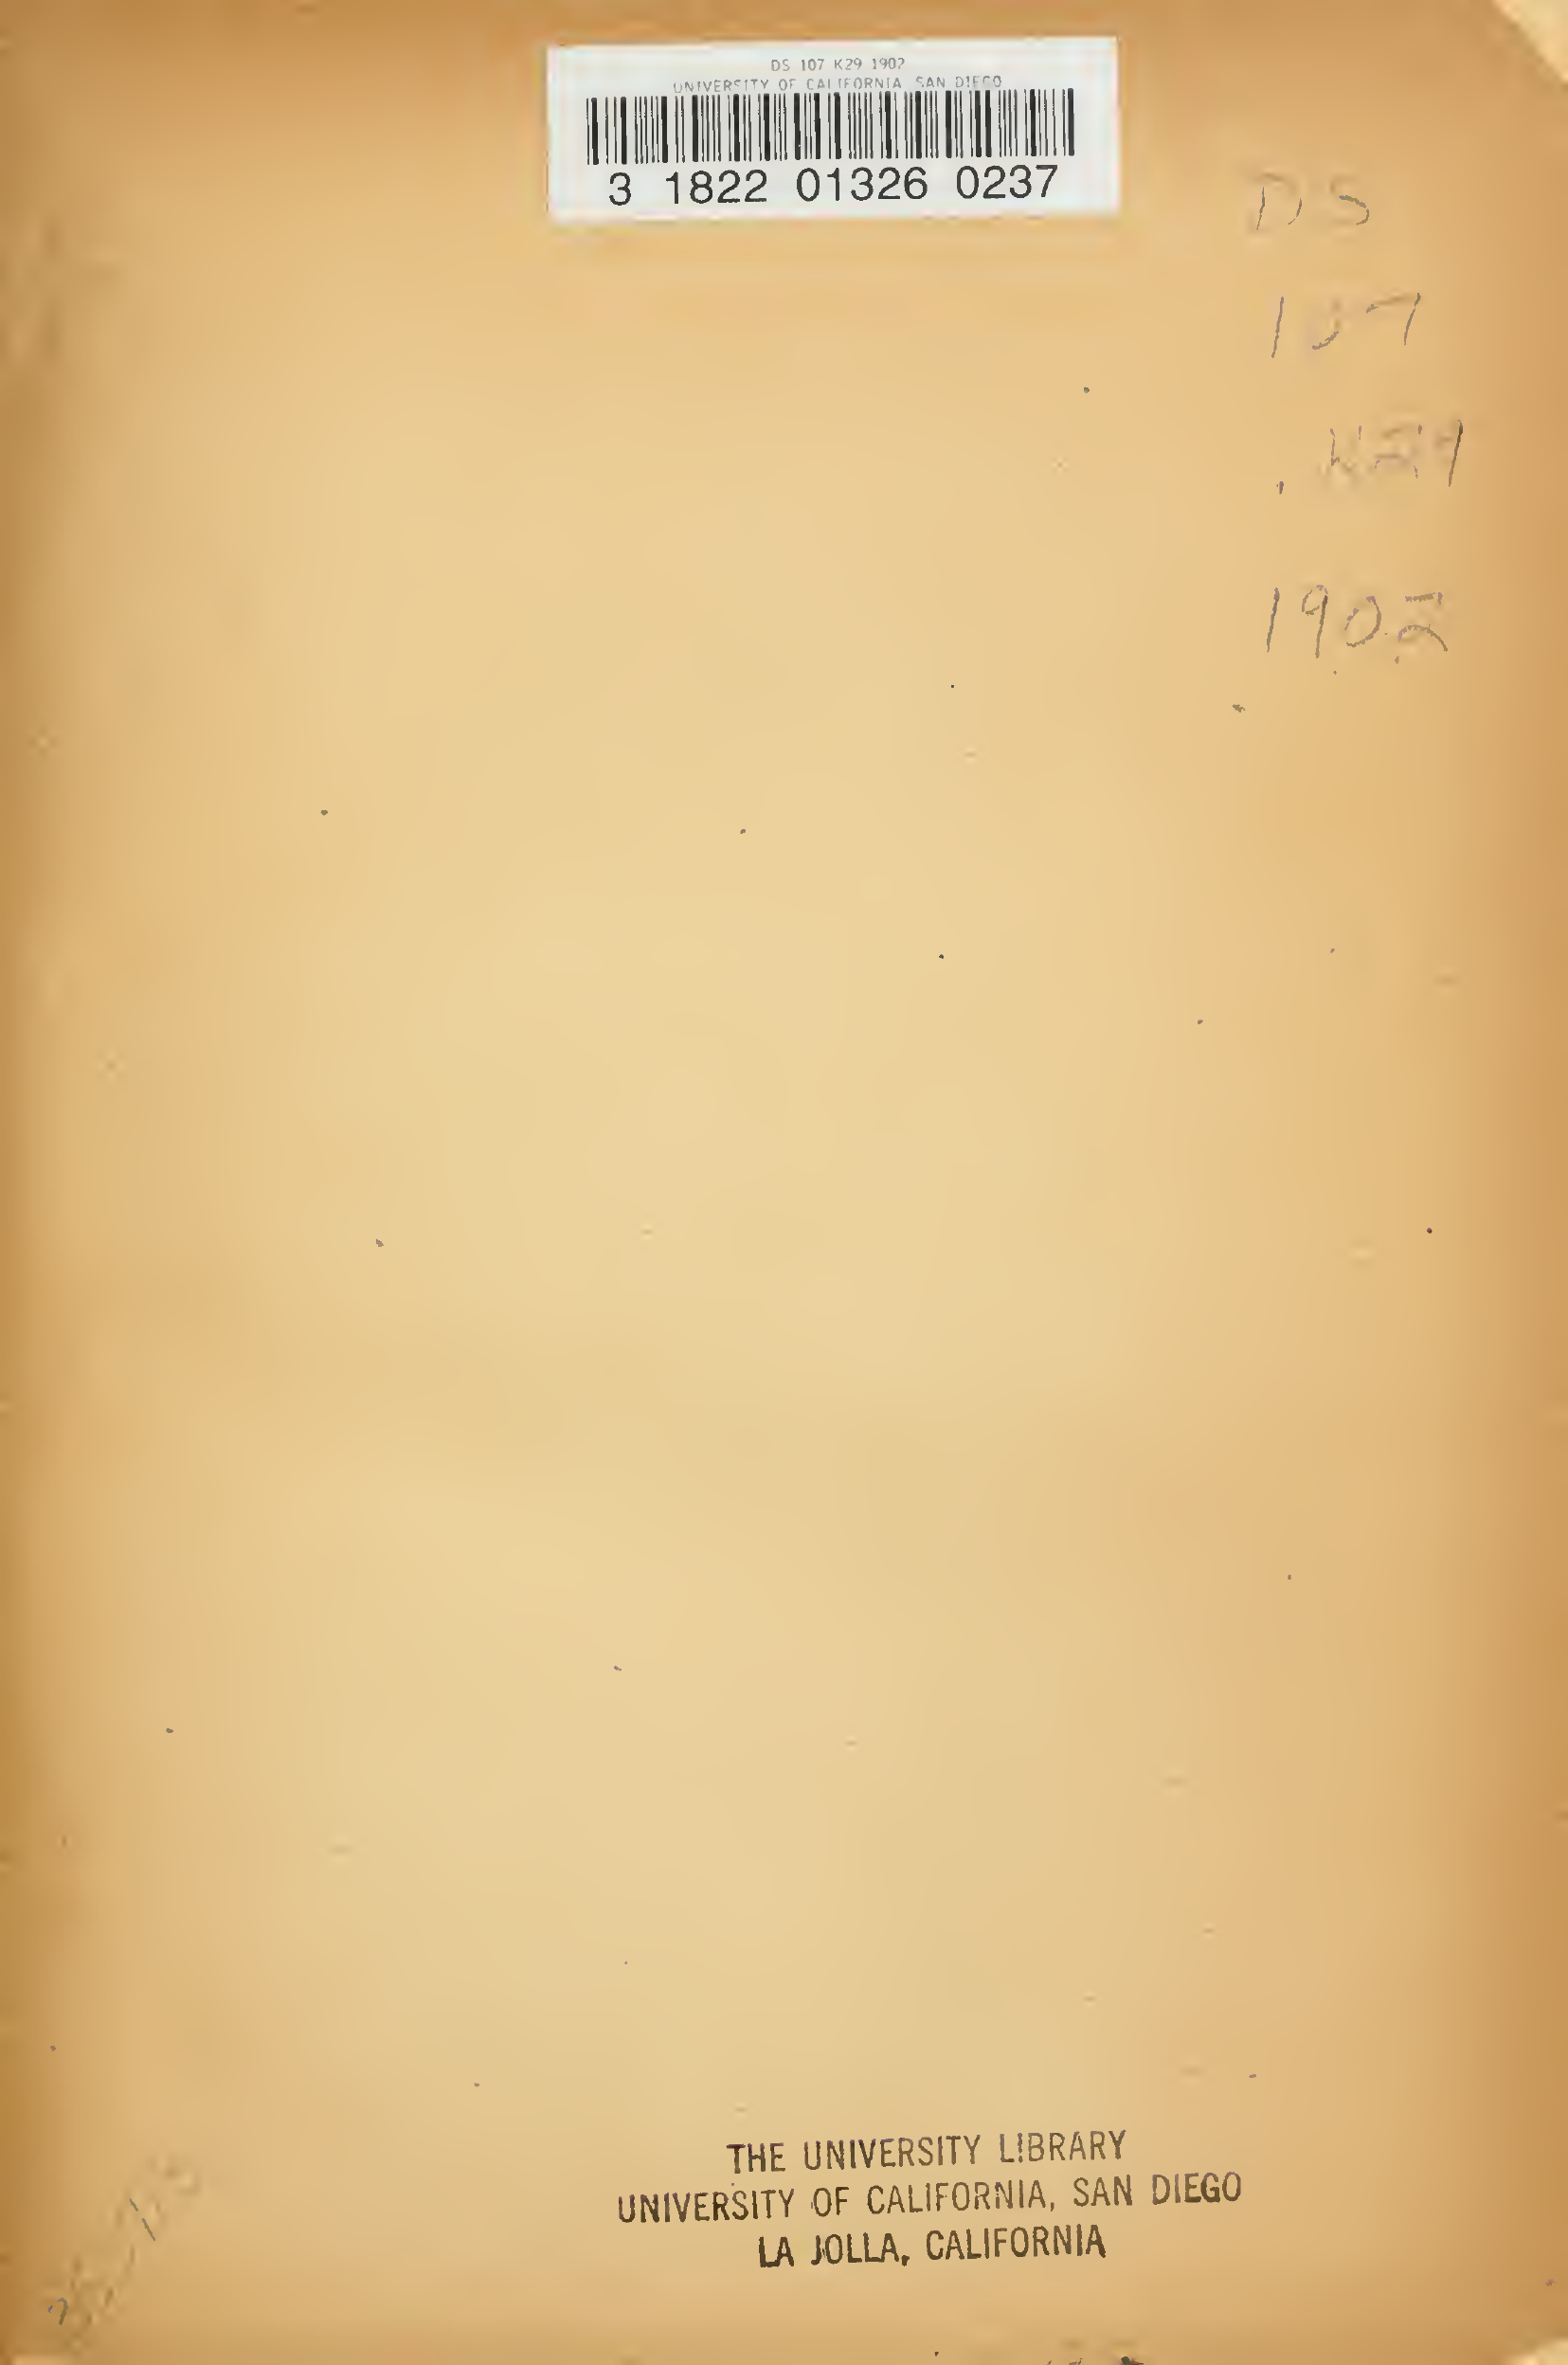 DS 107 K29 1902
UNIVERSITY OF CALIFORNIA, SAN DIEGO
3 1822 01326 0237
DS
107
.K29
1902
THE UNIVERSITY LIBRARY
UNIVERSITY OF CALIFORNIA, SAN DIEGO
LA JOLLA, CALIFORNIA